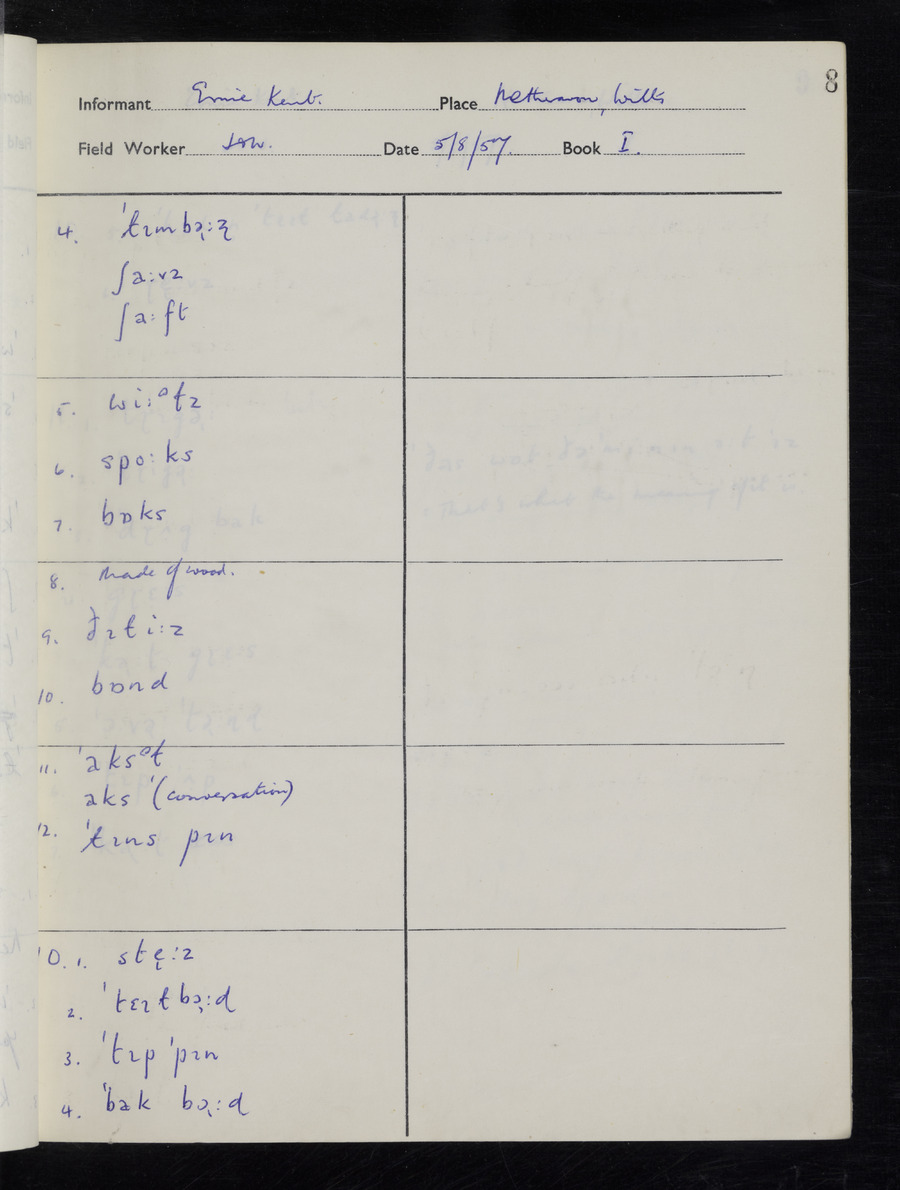 8
Informant Ernie Kent. Place Netheravon, Wilts
Field Worker Date 5/8/57. Book I.
4. ˈtɪmbə̨:ɽ
ʃa:vz
ʃa:ft
5. wi:ᵊɫz
6. spo:ks
7. bɒks
8. Made of wood.
9. ðɪɫi:z
10. bɒnd
11. ˈaksᵊɫ
aks (conversation)
12. ˈɫɪns pɪn
10. 1. stę:z
2. ˈtɛɪɫbɔ̨:d
3. ˈtɪp ˈpɪn
4. ˈbak bɔ̨:d